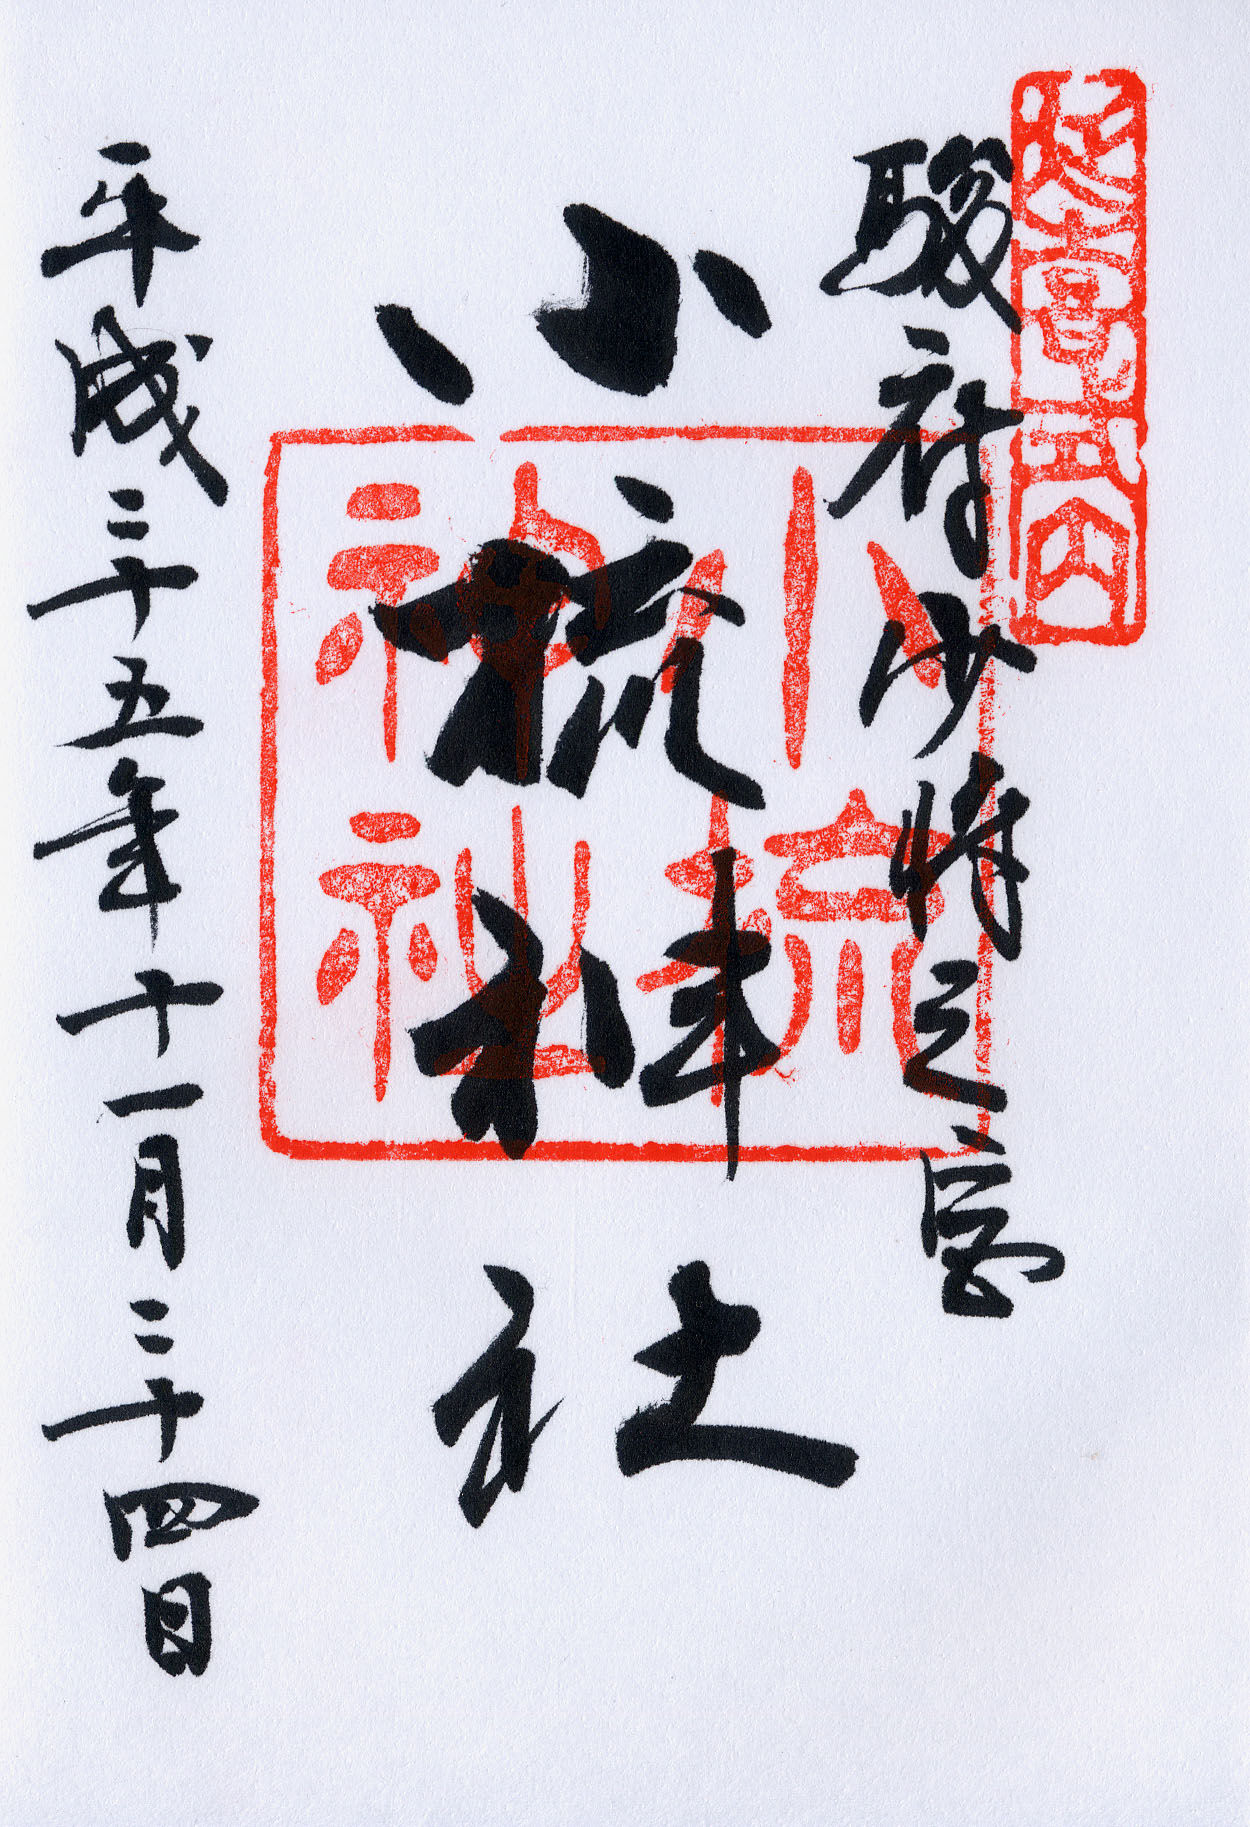 駿府少将之宮
小梳神社
小梳神社
平成二十五年十一月二十四日